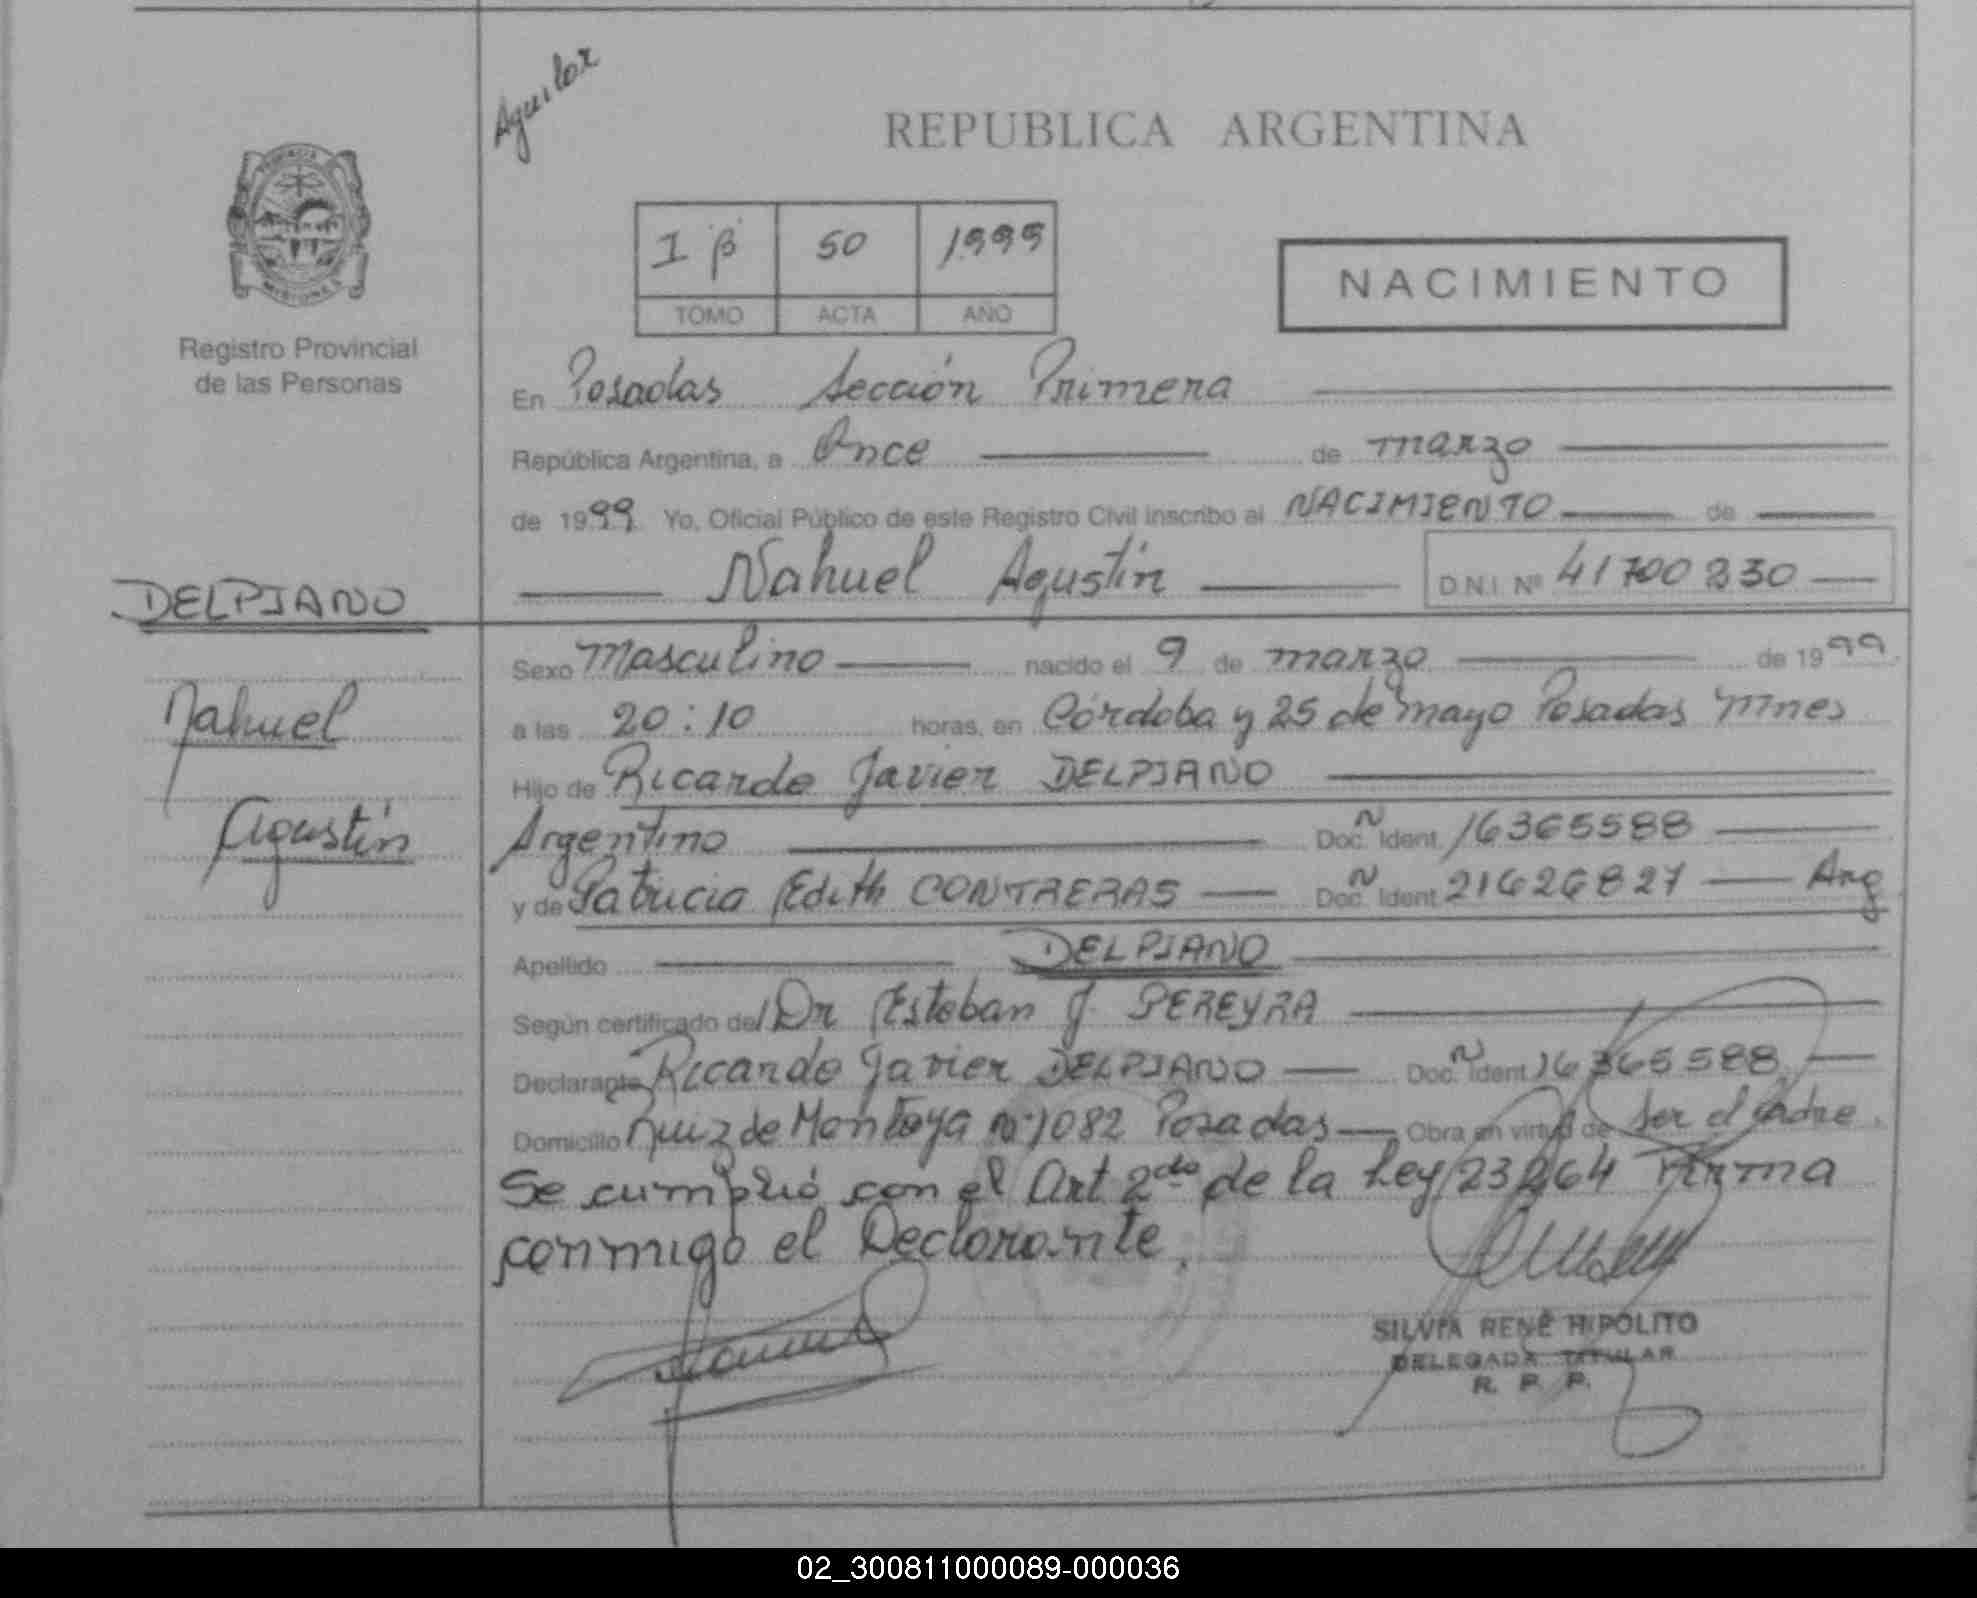 Aguilar
REPUBLICA ARGENTINA
PROVINCIA
MISIONES
Registro Provincial
de las Personas
I B 50 1999
TOMO ACTA AÑO
NACIMIENTO
En Posadas Sección Primera
República Argentina, a Once de marzo
de 1999 Yo, Oficial Público de este Registro Civil inscribo al NACIMIENTO de
Nahuel Agustín D.N.I. Nº 41700330
DELPIANO
Nahuel
Agustín
Sexo Masculino nacido el 9 de marzo de 1999
a las 20:10 horas, en Córdoba y 25 de mayo Posadas Mnes
Hijo de Ricardo Javier DELPIANO
Argentino Doc. Ident. 16365588
y de Patricia Edith CONTRERAS Doc. Ident. 21626827 Arg
Apellido DELPIANO
Según certificado del Dr Esteban J. PEREYRA
Declarante Ricardo Javier DELPIANO Doc. Ident. 16365588
Domicilio Ruiz de Montoya nº 1082 Posadas Obra en virtud de ser el padre.
Se cumplió con el Art 2do de la Ley 23264 Firma
conmigo el Declarante.
SILVIA RENÉ HIPOLITO
DELEGADA TITULAR
R. P. P.
02_300811000089-000036